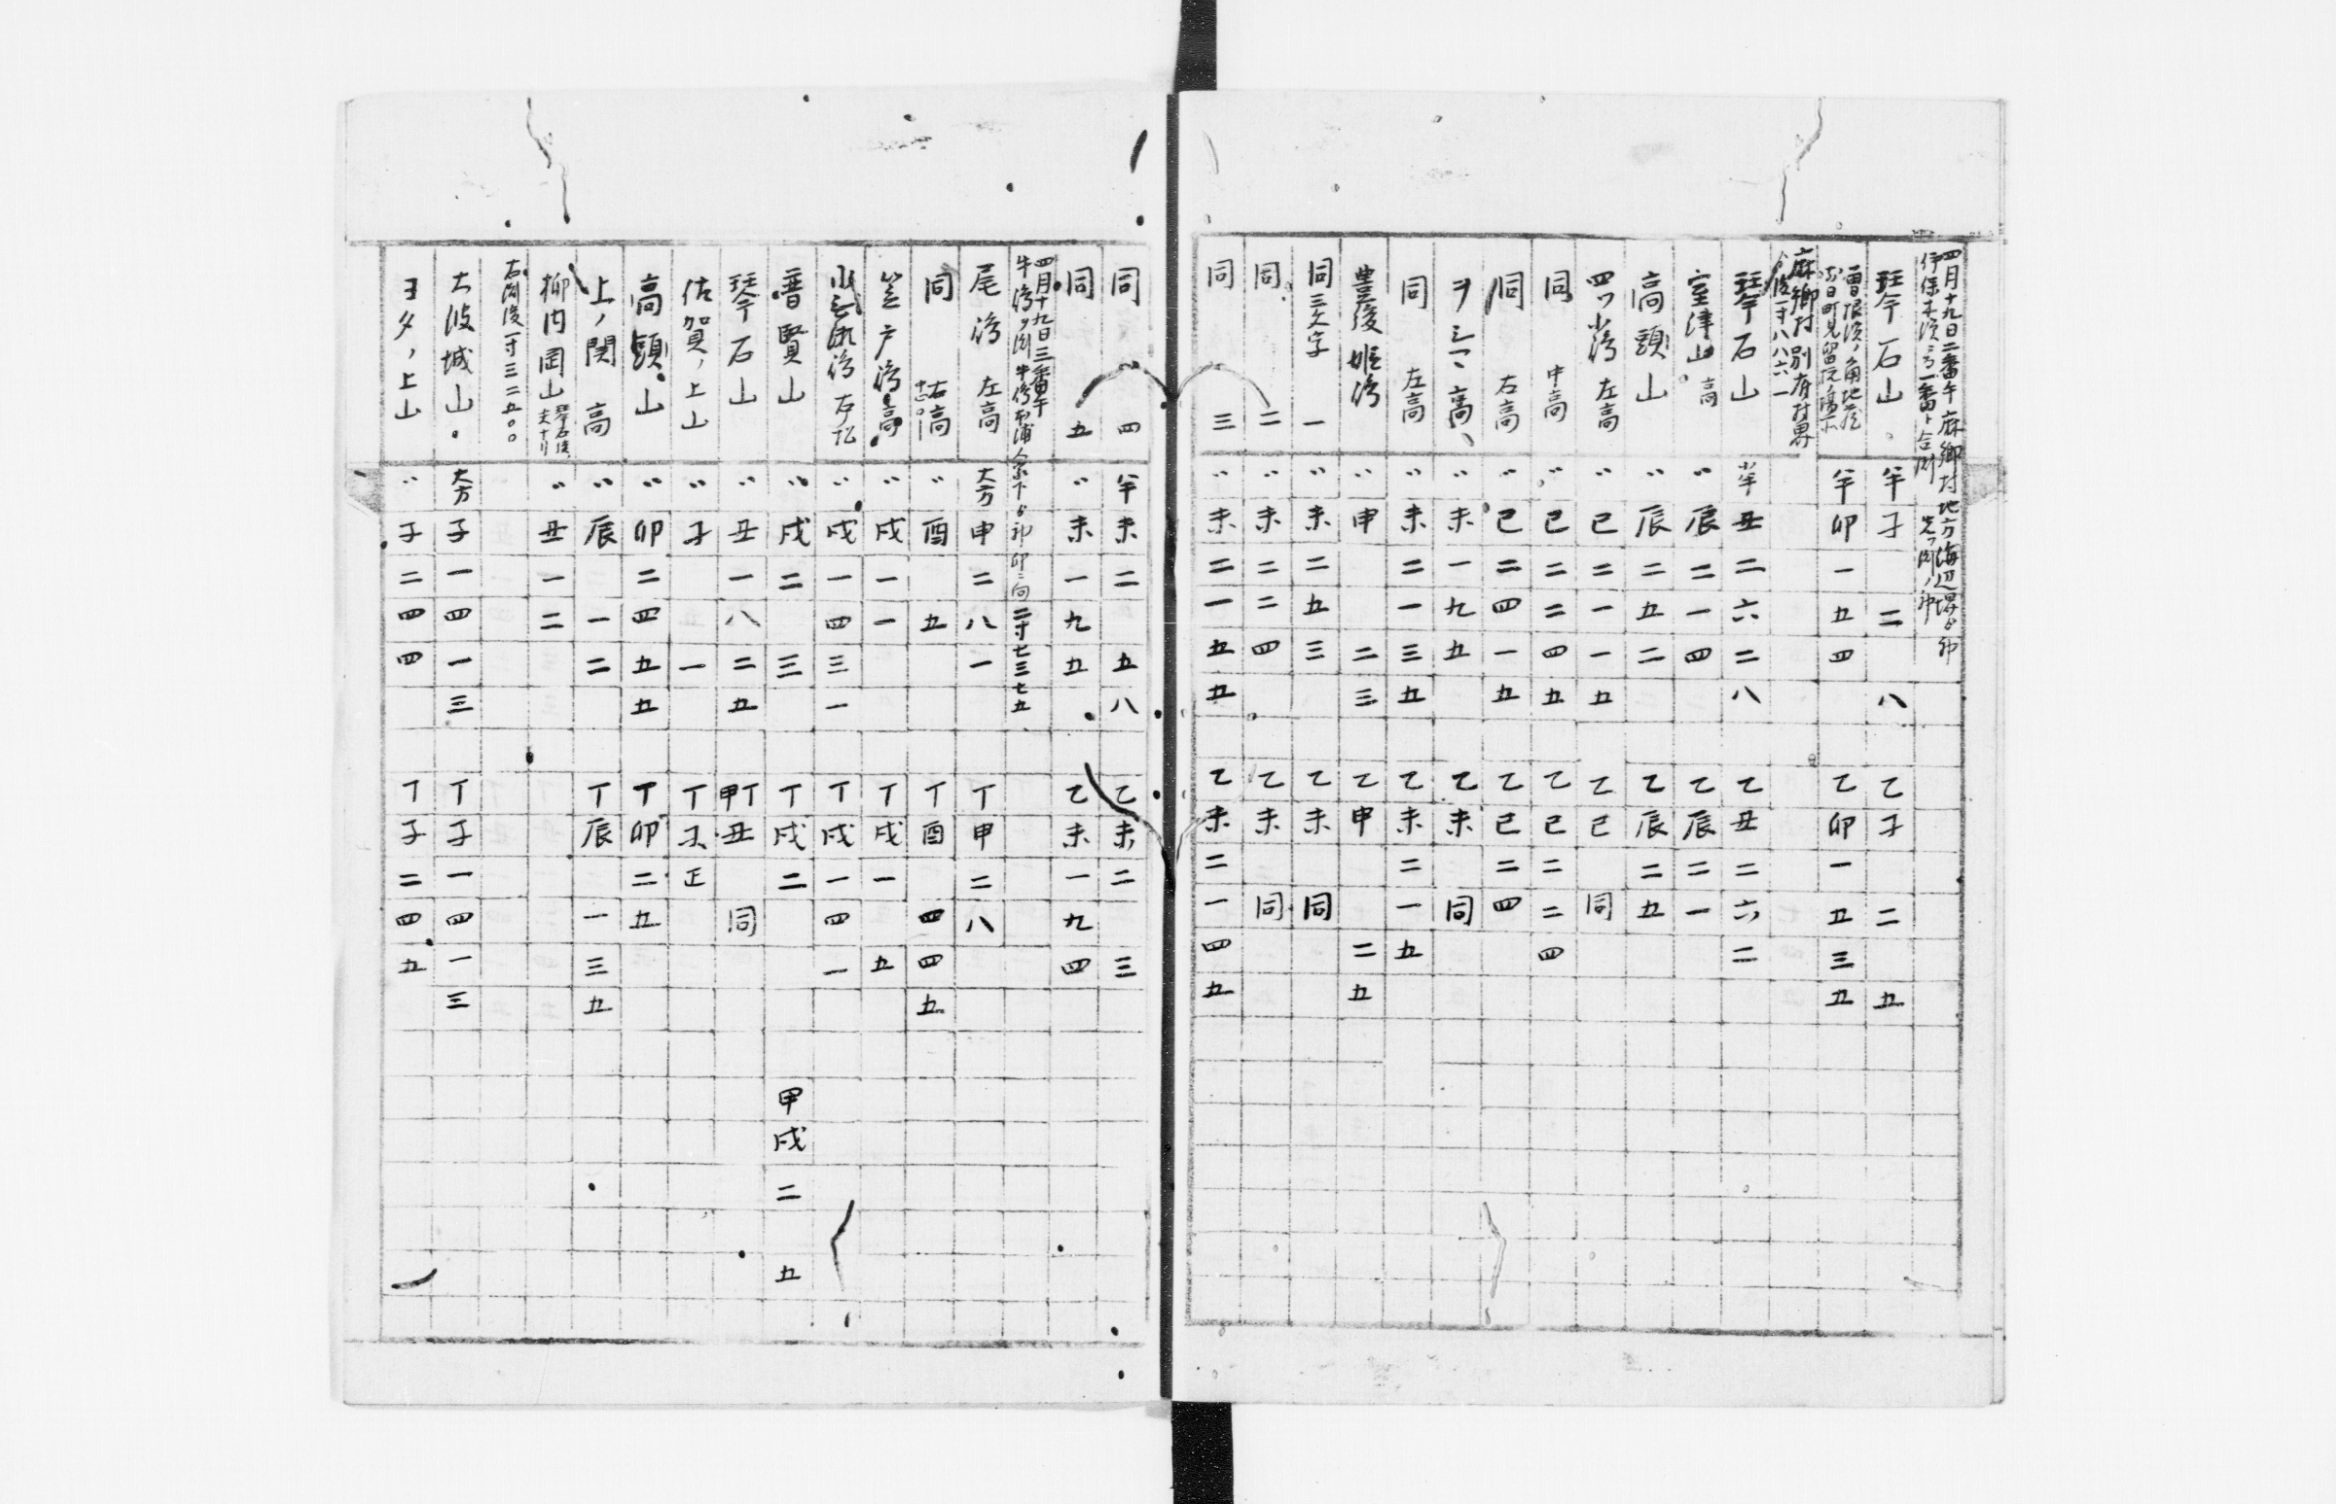 四月十九日二番午 麻郷村地方海辺堺ゟ卯
琴石山 半子 二 八 乙子 二 五
半卯一五四 乙卯一五三五
麻郷村別府村界
後一寸八八六一
琴石山 半丑二六二八 乙丑二六二
室津山 高 〃辰二一四 乙辰二一
高頭山 〃辰二五二 乙辰二五
四ツ小島 左高 〃巳二一一五 乙巳 同
同 中高 〃巳二二四五 乙巳二二四
同 右高 〃巳二四一五 乙巳二四
〃未一九五 乙未 同
同 左高 〃未二一三五 乙未二一五
豊後姫島 〃申 二三 乙申 二五
同三文字 一 〃未二五三 乙未 同
同 二 〃未二二四 乙未 同
同 三 〃未二一五五 乙未二一四五
同 四 半未二 五八 乙未二 三
同 五 〃未一九五 乙未一九四
四月十九日三番午
二寸七三七五
尾島 左高 大方申二八一 丁申二八
同 右高 〃酉 五 丁酉 四四五
笠戸島高 〃戌一一 丁戌一 五
〃戌一四三一 丁戌一四一
普賢山 〃戌二 三 丁戌二 甲戌二 五
琴石山 〃丑一八二五 甲丁丑 同
佐賀ノ上山 〃子 一 丁子正
高頭山 〃卯二四五五 丁卯二五
上ノ関 高 〃辰 一二 丁辰 一三五
柳内岡山 〃丑一二
右測後一寸三二五〇〇
大波城山 大方子一四一三 丁子一四一三
ヨタノ上山 〃子二四四 丁子二四五